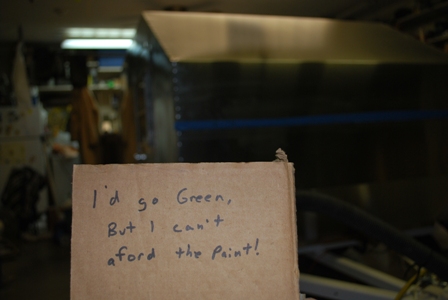 I'd go Green,
But I can't
aford the Paint!